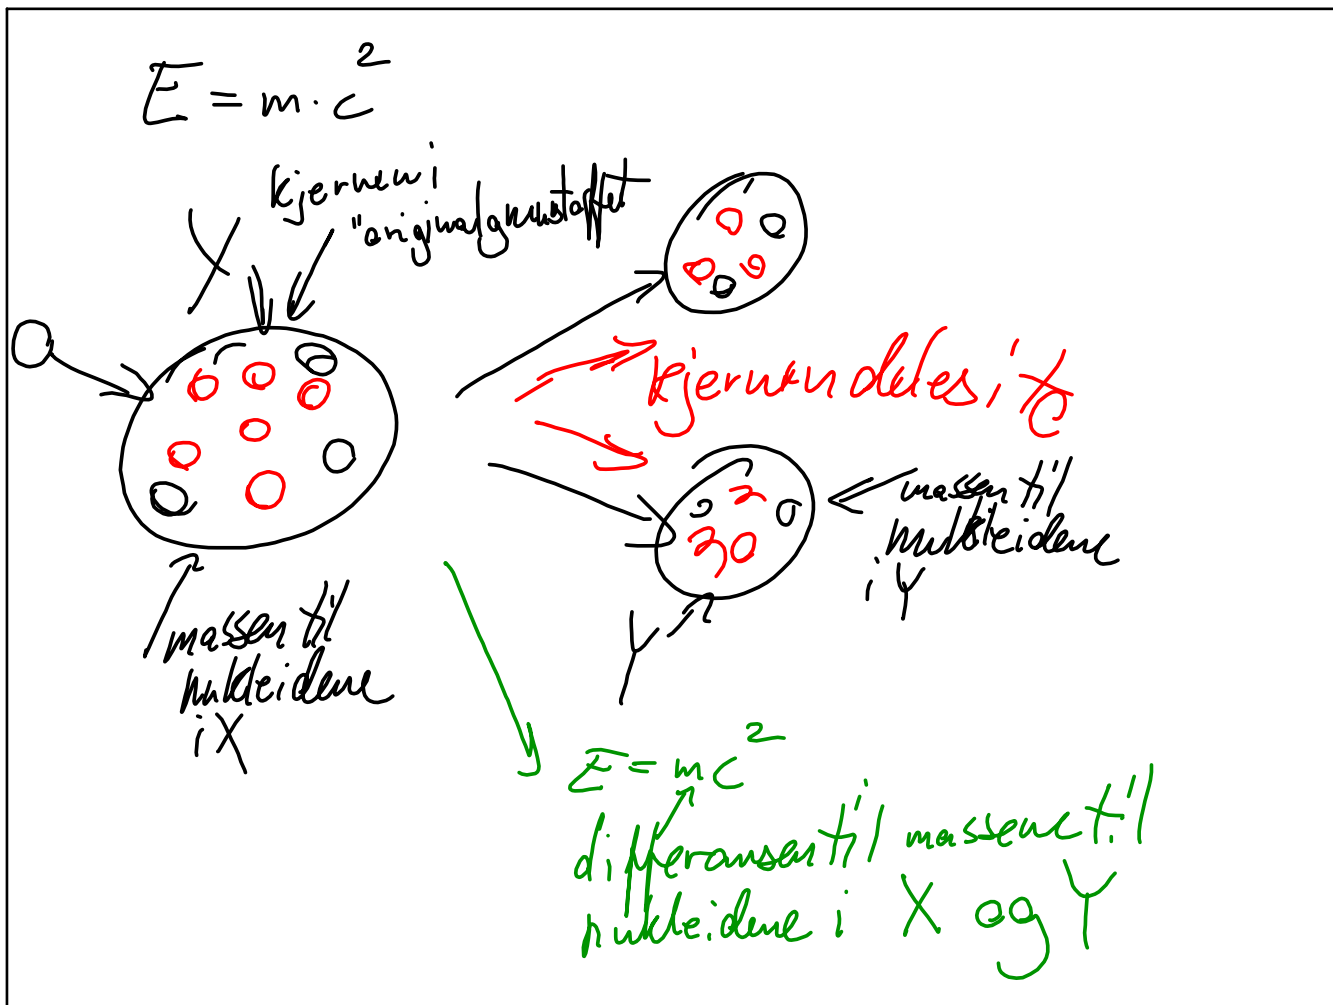 E = m · c²
kjernen i
"originalgrunnstoffet
X
kjernen deles i to
massen til
nukleidene
i Y
massen til
nukleidene
i X
Y
E = mc²
differansen til massene til
nukleidene i X og Y